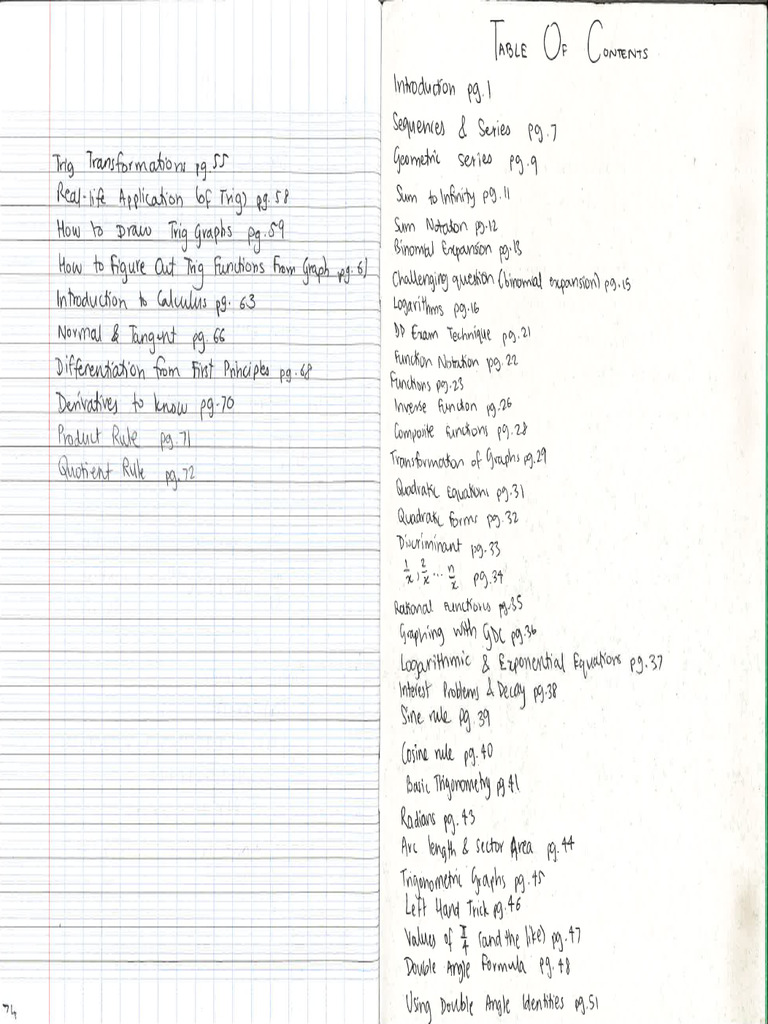 TABLE OF CONTENTS
Introduction pg.1
Sequences & Series pg.7
Geometric series pg.9
Sum to Infinity pg.11
Sum Notation pg.12
Binomial Expansion pg.13
Challenging question (binomial expansion) pg.15
Logarithms pg.16
DD Exam Technique pg.21
Function Notation pg.22
Functions pg.23
Inverse Function pg.26
Composite Functions pg.28
Transformation of Graphs pg.29
Quadratic Equations pg.31
Quadratic Forms pg.32
Discriminant pg.33
1/x, 2/x ... n/x pg.34
Rational Functions pg.35
Graphing with GDC pg.36
Logarithmic & Exponential Equations pg.37
Interest Problems & Decay pg.38
Sine rule pg.39
Cosine rule pg.40
Basic Trigonometry pg.41
Radians pg.43
Arc length & sector Area pg.44
Trigonometric Graphs pg.45
Left Hand Trick pg.46
Values of π/4 (and the like) pg.47
Double Angle Formula pg.48
Using Double Angle Identities pg.51
Trig Transformations pg.55
Real-life Application (of Trig) pg.58
How to Draw Trig Graphs pg.59
How to Figure Out Trig Functions From Graph pg.61
Introduction to Calculus pg. 63
Normal & Tangent pg.66
Differentiation from First Principles pg.68
Derivatives to know pg.70
Product Rule pg.71
Quotient Rule pg.72
74